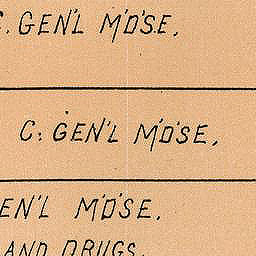 C. GEN'L M'D'S.E,
C. GEN'L M'D'SE,
GEN'L M'D'SE.
AND DRUGS.